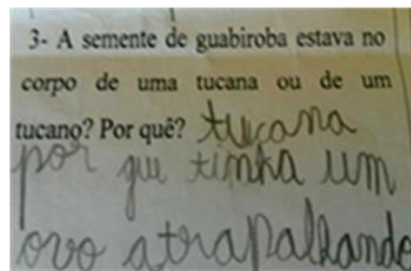 3- A semente de guabiroba estava no
corpo de uma tucana ou de um
tucano? Por quê? tucana
por que tinha um
ovo atrapalhando